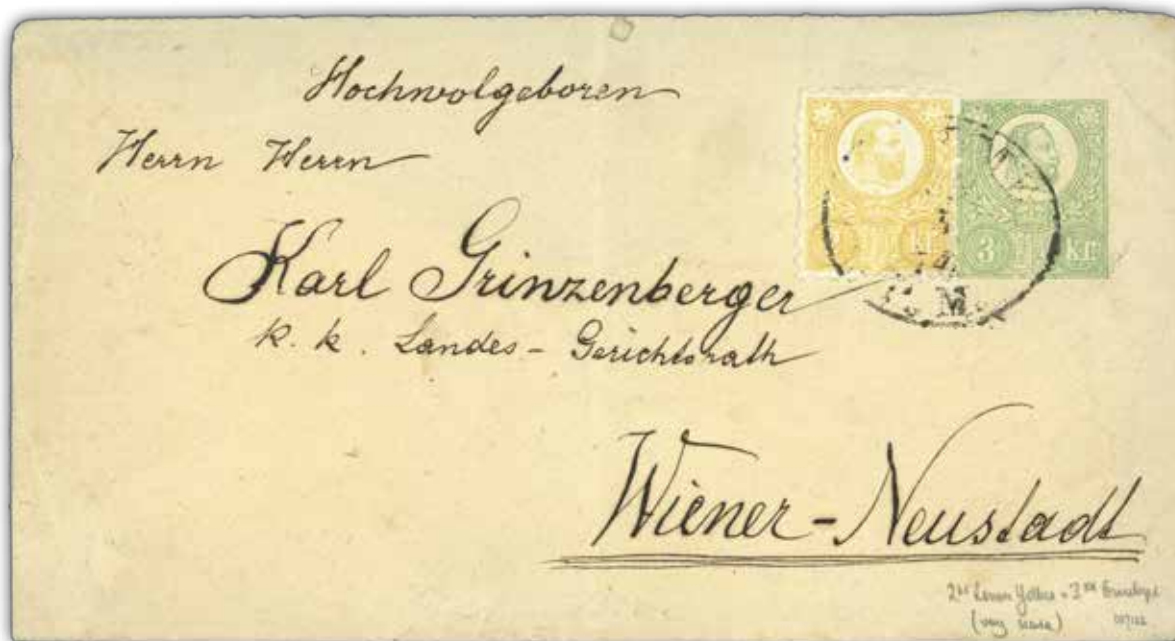 Hochwolgeboren
Herrn Herrn
Karl Grinzenberger
k. k. Landes-Gerichtsrath
Wiener-Neustadt
kr.
3 kr.
2kr Lemon Yellow + 3kr Envelope
(very scarce)